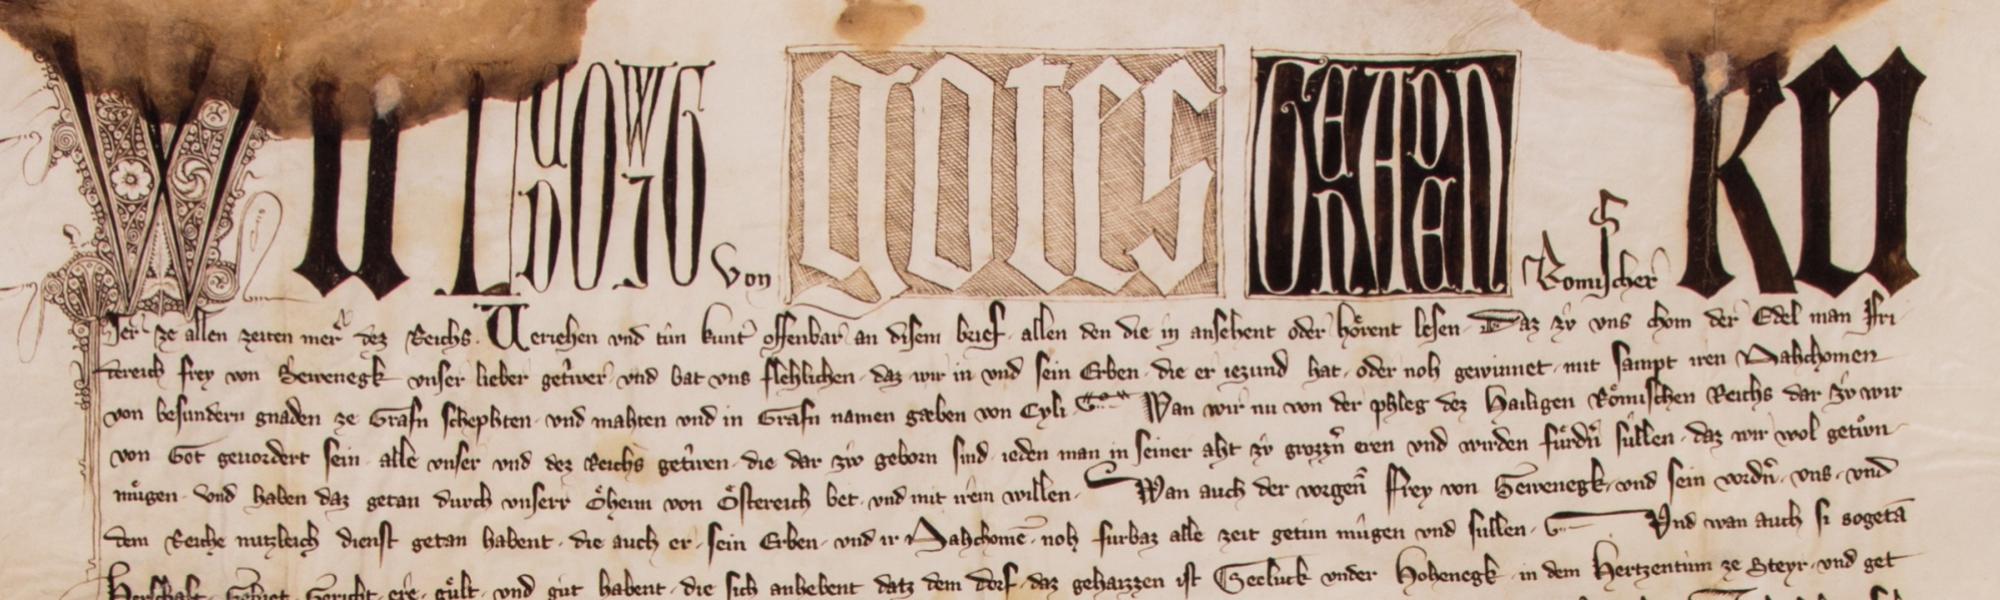 Wir Ludowig von gotes genaden Romischer kei
ser ze allen zeiten merer dez Reichs. Veriehen vnd tůn kunt offenbar an disem brief. allen den die in ansehent oder hoͤrent lesen. Daz zů vns chom der Edel man Fri
dereich frey von Sewenegk vnser lieber getrwer vnd bat vns flehlichen. daz wir in vnd sein Erben. die er iezund hat. oder noh gewinnet. mit sampt iren Nahchomen
von besundern gnaden ze Grafn schephten. vnd mahten vnd in Grafn namen gæben von Cyli. Wan wir nu von der phleg dez Hailigen Roͤmischen Reichs dar zů wir
von Got geuordert sein. alle vnser vnd dez Reichs getrwen. die dar zů geborn sind. ieden man in seiner aht zů grozzn̄ eren vnd wirden fuͤrdn̄ suͤllen. daz wir wol getůn
muͤgen. vnd haben daz getan durch vnserr Oͤheim von Oͤstereich bet. vnd mit irem willen. Wan auch der vorgen̄ Frey von Sewenegk. vnd sein vordn̄. vns. vnd
dem Reiche nutzleich dienst getan habent. die auch er. sein Erben. vnd ir Nahchomē. noh furbaz alle zeit getun mugen vnd sullen. Vnd wan auch si sogetā
Herschaft. Gebiet. Gericht. ere. guͤlt. vnd gut habent. die sich anhebent datz dem dorf. daz gehaizzen ist Geeluck vnder Hohenegk. in dem Hertzentům ze Steyr. vnd get